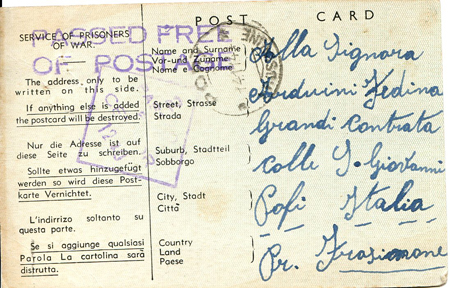 POST CARD
PASSED FREE
OF POSTAGE
SERVICE OF PRISONERS
OF WAR.
The address only to be
written on this side.
If anything else is added
the postcard will be destroyed.
Nur die Adresse ist auf
diese Seite zu schreiben.
Sollte etwas hinzugefügt
werden so wird diese Post-
karte Vernichtet.
L'indirizzo soltanto su
questa parte.
Se si aggiunge qualsiasi
Parola La cartolina sarà
distrutta.
Name and Surname
Vor-und Zuname
Nome e Cognome
Street, Strasse
Strada
Suburb, Stadtteil
Sobborgo
City, Stadt
Citta
Country
Land
Paese
Alla Signora
Arduini Fedina
Grandi Contrata
Colle S. Giovanni
Pofi Italia
Pr. Frosinone